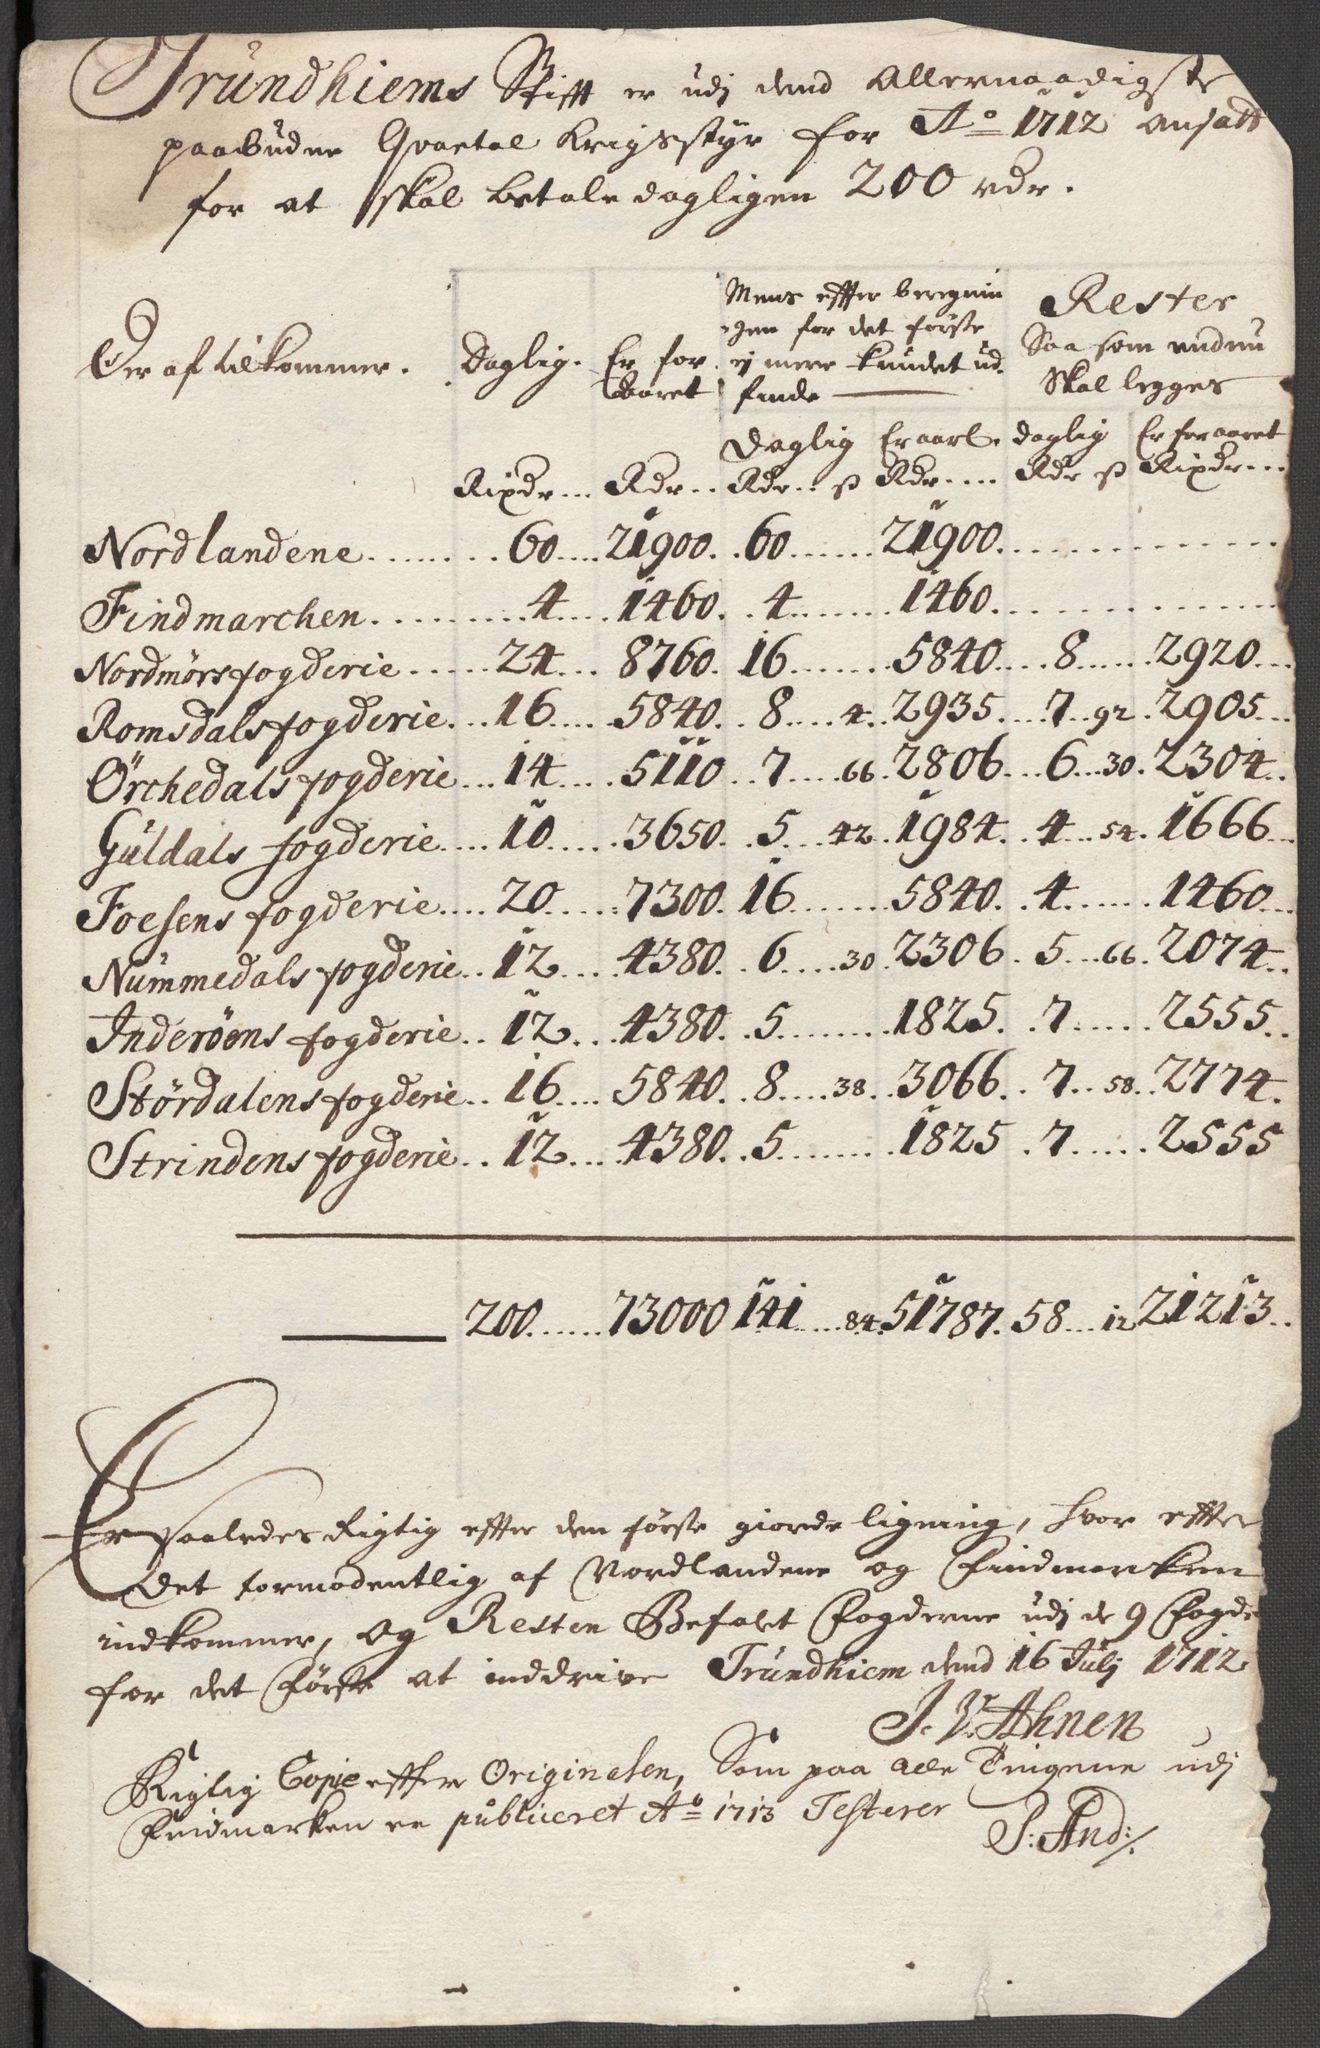 Trundhiems Stifft er udj dend Allernaadigste
paabudne Qvartal Krigsstyr for Ao 1712 ansatt
for at skal betale dagligen 200 rdr.
Der af tilkommer. Daglig. Er for aaret Mens effter beregnin gen for det første ej mere kundet ud finde Rester Saa som endnu skal legges
Daglig Er aarl. daglig Er for aaret
Rixdr... Rdr.. Rdr.. ß Rdr.... Rdr ß Rixdr...
Nordlandene 60 21900 60 21900
Findmarchen 4 1460 4 1460
Nordmørs fogderie 24 8760 16 5840 8 2920
Romsdals fogderie 16 5840 8 4 2935 7 92 2905
Örchedals fogderie 14 5110 7 66 2806 6 30 2304
Guldals fogderie 10 3650 5 42 1984 4 54 1666
Foesens fogderie 20 7300 16 5840 4 1460
Nummedals fogderie 12 4380 6 30 2306 5 66 2074
Inderöens fogderie 12 4380 5 1825 7 2555
Stördalens fogderie 16 5840 8 38 3066 7 58 2774
Strindens fogderie 12 4380 5 1825 7 2555
200 73000 141 84 51787 58 12 21213
Er saaledes Rigtig effter den første giorde ligning, hvor effter
Det formodentlig af Nordlandene og Findmarken
indkommer, og Resten Befalet Fogderne udj de 9 Fogde
for det Første at inddrive Trundhiem dend 16 Julj 1712
J. V. Ahnen
Rigtig Copie effter Originalen, Som paa alle Tingene udj
Findmarken er publiceret Ao 1713 Testerer
S: And:/.